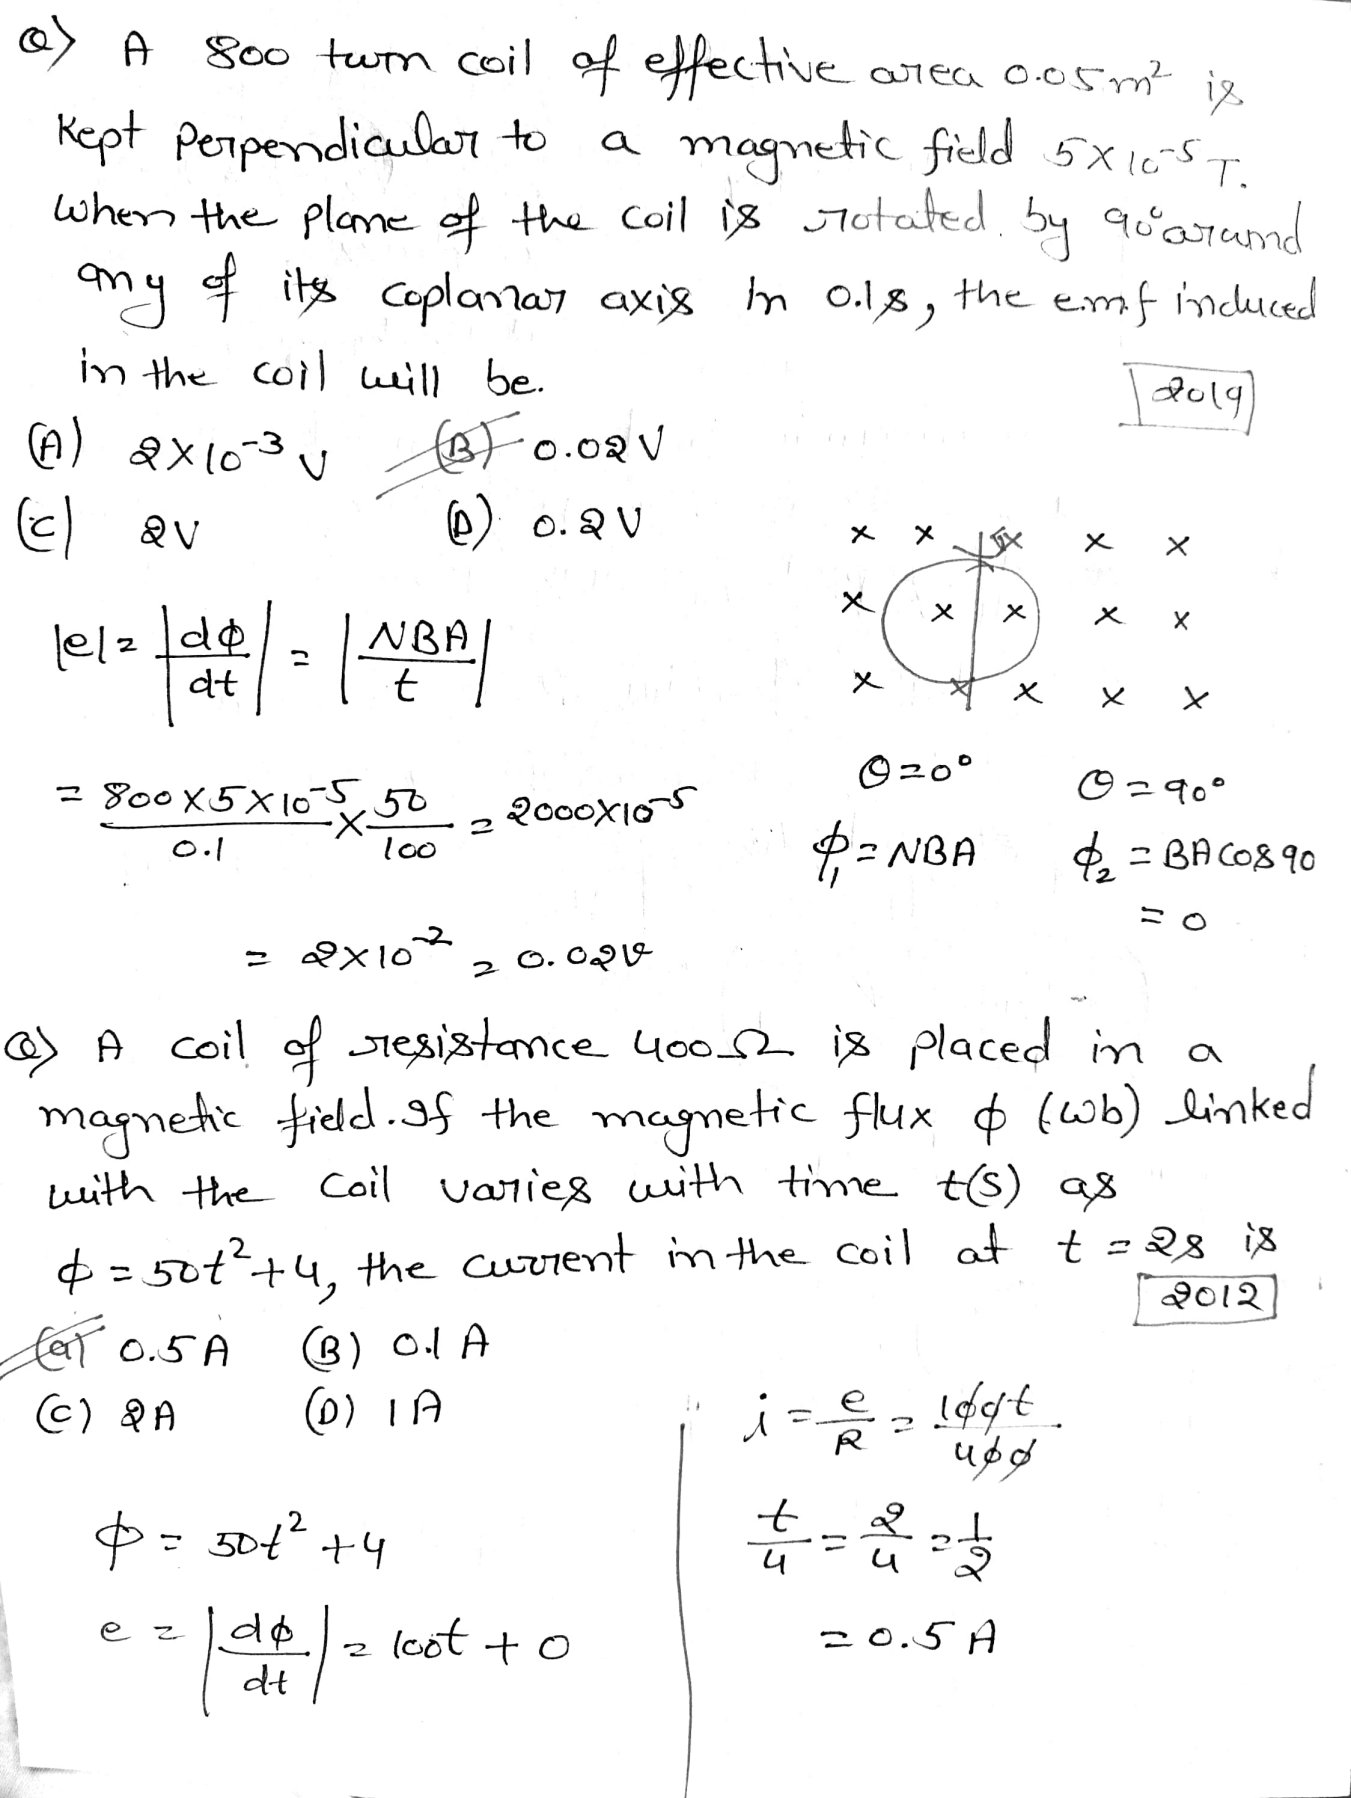 Q) A 800 turn coil of effective area 0.05m² is
kept perpendicular to a magnetic field 5×10⁻⁵ T.
When the plane of the coil is rotated by 90° around
any of its coplanar axis in 0.1s, the e.m.f induced
in the coil will be.
2019
(A) 2×10⁻³ V (B) 0.02V
(C) 2V (D) 0.2V
|e| = |dϕ/dt| = |NBA/t|
θ=0° θ=90°
= 800×5×10⁻⁵/0.1 × 50/100 = 2000×10⁻⁵
ϕ₁=NBA ϕ₂=BAcos90
=0
= 2×10⁻² = 0.02v
Q) A coil of resistance 400Ω is placed in a
magnetic field. If the magnetic flux ϕ (wb) linked
with the coil varies with time t(s) as
ϕ=50t²+4, the current in the coil at t=2s is
2012
(a) 0.5A (B) 0.1A
(C) 2A (D) 1A
i = e/R = 100t/400
ϕ = 50t²+4
t/4 = 2/4 = 1/2
e = |dϕ/dt| = 100t+0
=0.5A